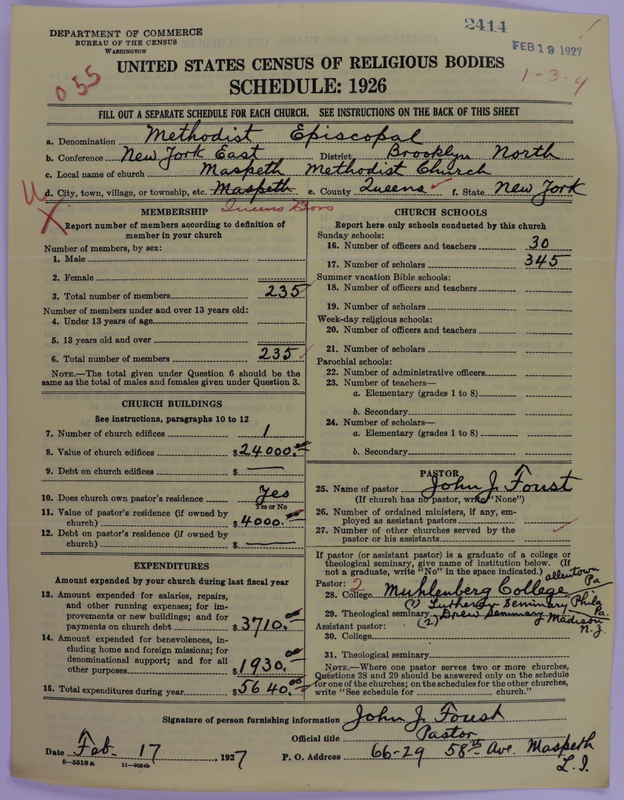 2414
FEB 19 1927
DEPARTMENT OF COMMERCE
BUREAU OF THE CENSUS
WASHINGTON
055
1-3-4
UNITED STATES CENSUS OF RELIGIOUS BODIES
SCHEDULE: 1926
FILL OUT A SEPARATE SCHEDULE FOR EACH CHURCH. SEE INSTRUCTIONS ON THE BACK OF THIS SHEET
a. Denomination Methodist Episcopal
b. Conference New York East District Brooklyn North
c. Local name of church Maspeth Methodist Church
d. City, town, village, or township, etc. Maspeth e. County Queens f. State New York
Queens Boro
MEMBERSHIP
Report number of members according to definition of
member in your church
Number of members, by sex:
1. Male
2. Female
3. Total number of members 235
Number of members under and over 13 years old:
4. Under 13 years of age
5. 13 years old and over
6. Total number of members 235
NOTE.—The total given under Question 6 should be the
same as the total of males and females given under Question 3.
CHURCH BUILDINGS
See instructions, paragraphs 10 to 12
7. Number of church edifices 1
8. Value of church edifices $24000.00
9. Debt on church edifices $ —
10. Does church own pastor's residence Yes
Yes or No
11. Value of pastor's residence (if owned by
church) $4000.00
12. Debt on pastor's residence (if owned by
church) $ —
EXPENDITURES
Amount expended by your church during last fiscal year
13. Amount expended for salaries, repairs,
and other running expenses; for im-
provements or new buildings; and for
payments on church debt $3710.00
14. Amount expended for benevolences, in-
cluding home and foreign missions; for
denominational support; and for all
other purposes $1930.00
15. Total expenditures during year $5640.00
CHURCH SCHOOLS
Report here only schools conducted by this church
Sunday schools:
16. Number of officers and teachers 30
17. Number of scholars 345
Summer vacation Bible schools:
18. Number of officers and teachers
19. Number of scholars
Week-day religious schools:
20. Number of officers and teachers
21. Number of scholars
Parochial schools:
22. Number of administrative officers
23. Number of teachers—
a. Elementary (grades 1 to 8)
b. Secondary
24. Number of scholars—
a. Elementary (grades 1 to 8)
b. Secondary
PASTOR
25. Name of pastor John J. Foust
(If church has no pastor, write "None")
26. Number of ordained ministers, if any, em-
ployed as assistant pastors
27. Number of other churches served by the
pastor or his assistants
If pastor (or assistant pastor) is a graduate of a college or
theological seminary, give name of institution below. (If
not a graduate, write "No" in the space indicated.)
Pastor: 2
28. College Muhlenberg College Allentown Pa
29. Theological seminary (1) Lutheran Seminary Phila Pa.
(2) Drew Seminary Madison N.J.
Assistant pastor:
30. College
31. Theological seminary
NOTE.—Where one pastor serves two or more churches,
Questions 28 and 29 should be answered only on the schedule
for one of the churches; on the schedules for the other churches,
write "See schedule for church."
Signature of person furnishing information John J. Foust
Official title Pastor
Date Feb. 17, 1927 P. O. Address 66-29 58th Ave. Maspeth
L.I.
8—5518a 11—9054b